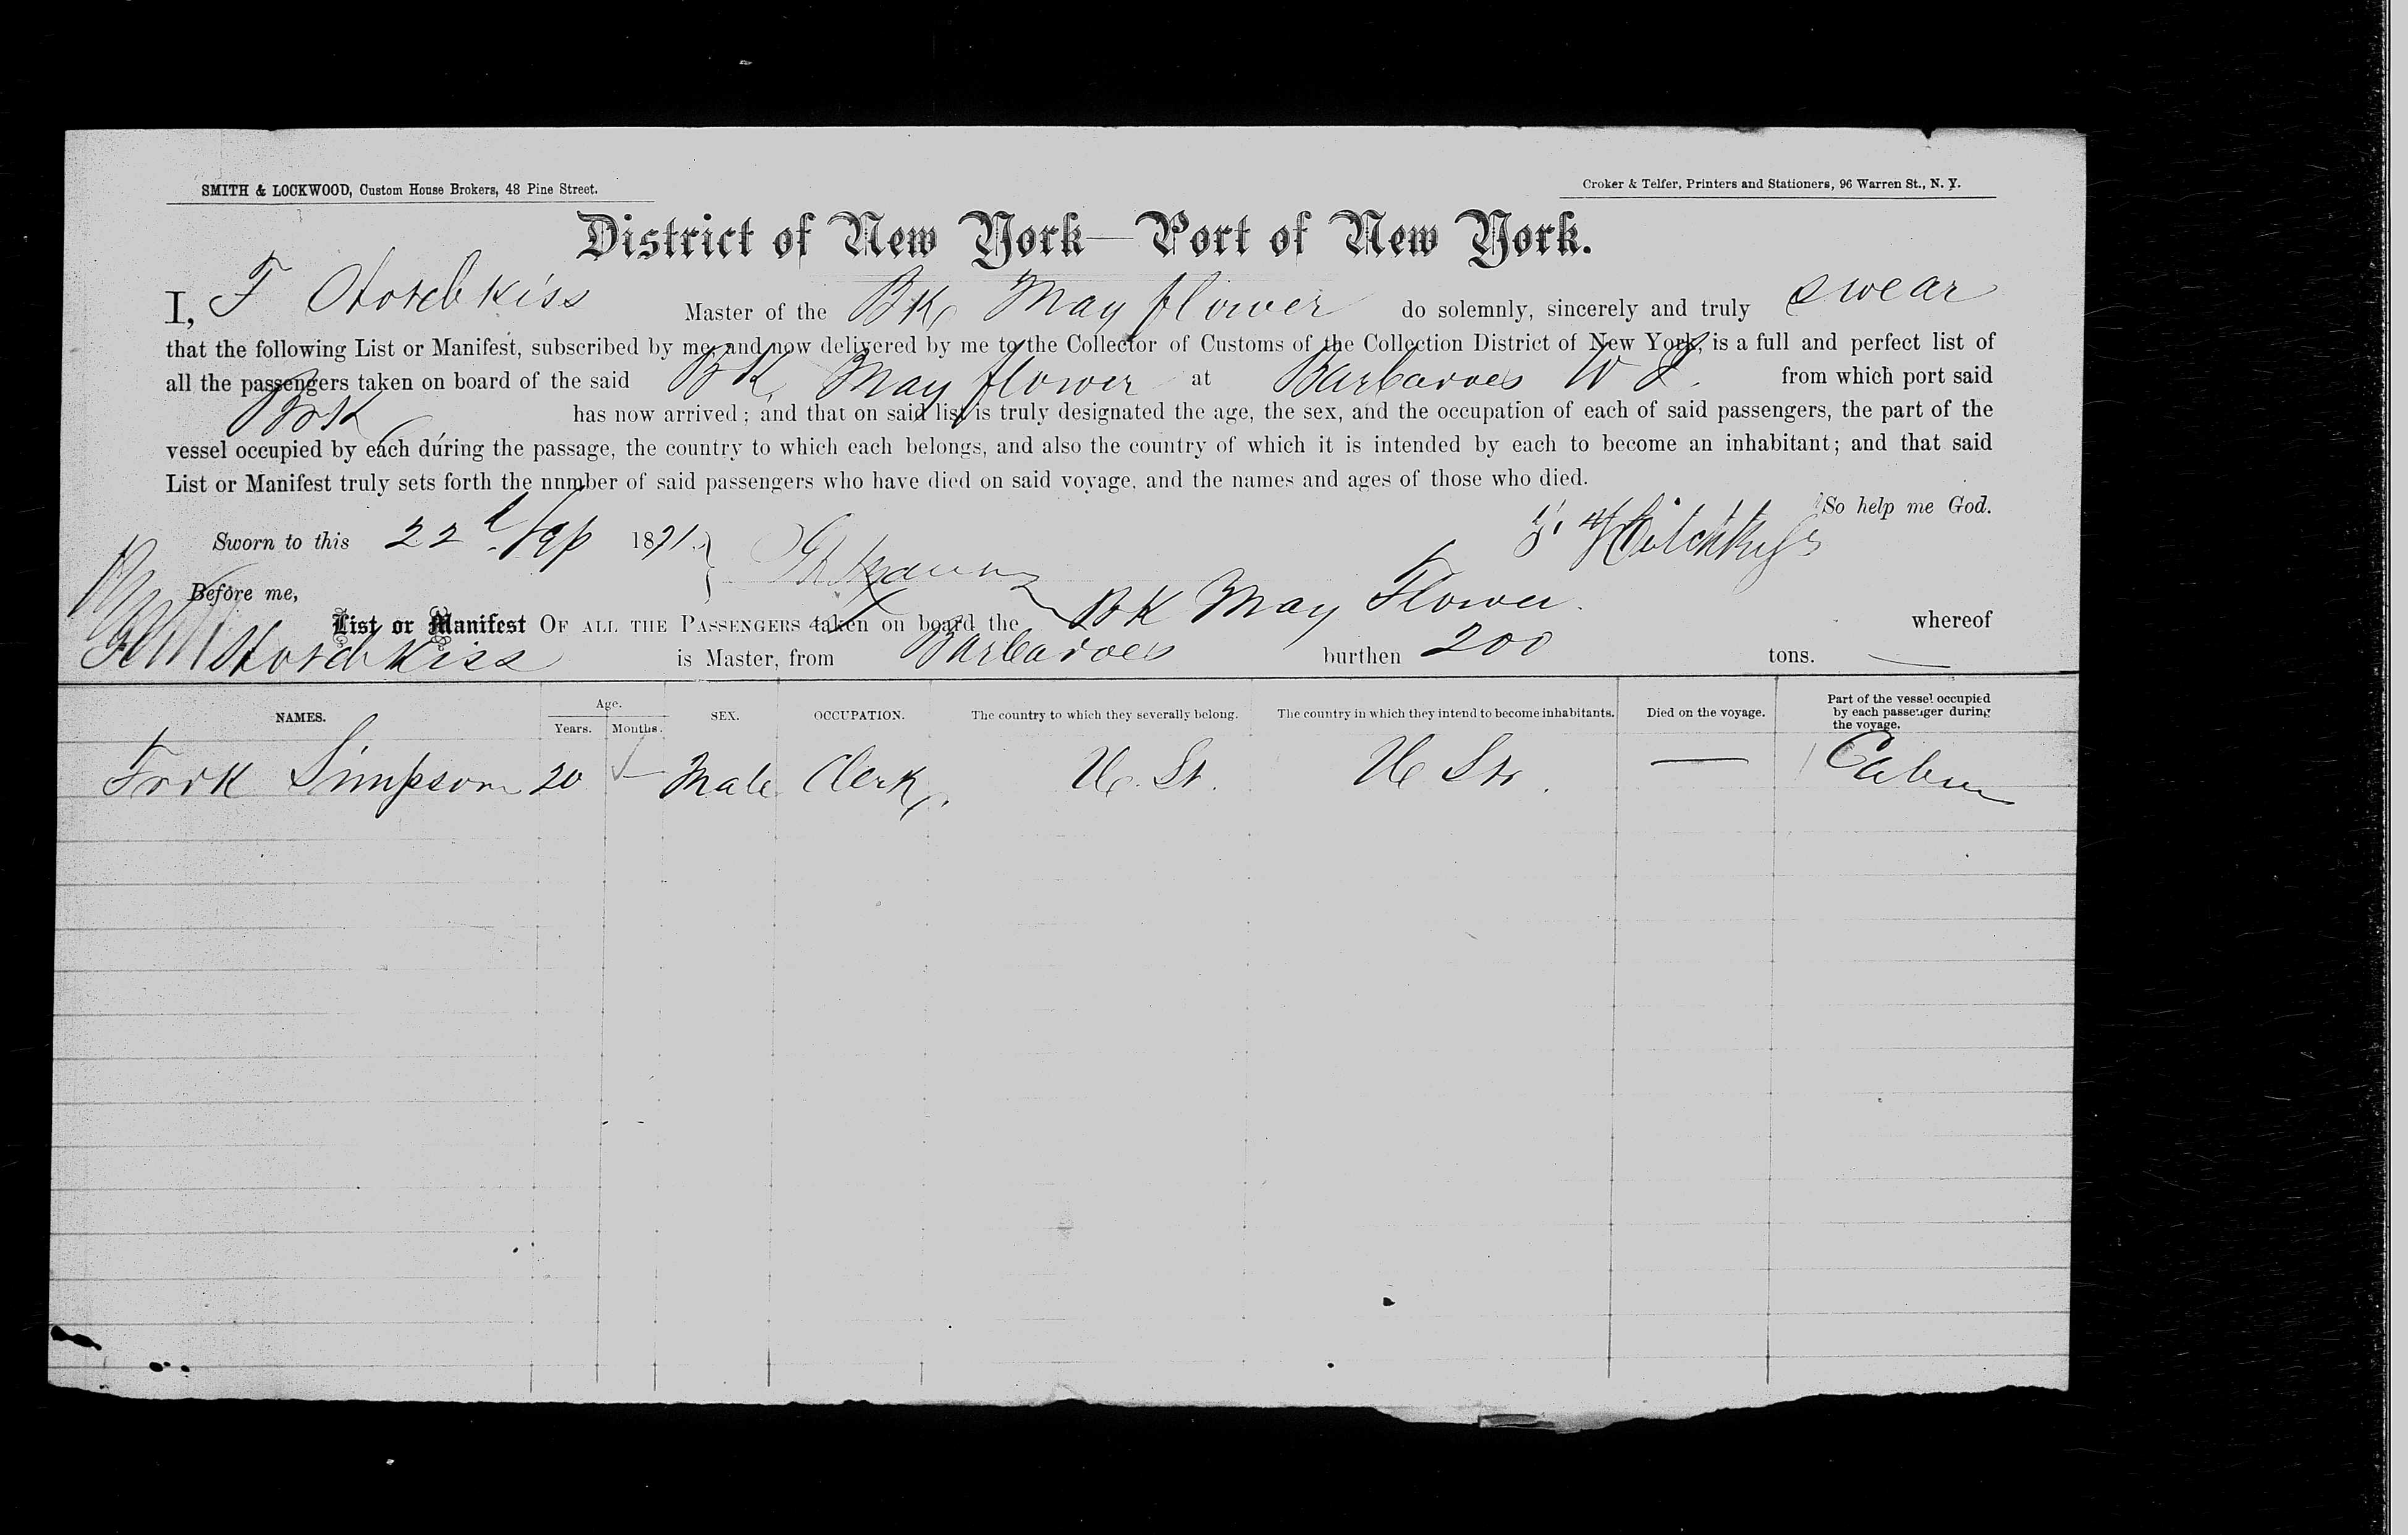 SMITH & LOCKWOOD, Custom House Brokers, 48 Pine Street.
Croker & Telfer, Printers and Stationers, 96 Warren St., N. Y.
District of New York—Port of New York.
I, F Hotchkiss Master of the BK May flower do solemnly, sincerely and truly swear
that the following List or Manifest, subscribed by me, and now delivered by me to the Collector of Customs of the Collection District of New York, is a full and perfect list of
all the passengers taken on board of the said BK May flower at Barbadoes W I. from which port said
Brk has now arrived; and that on said list is truly designated the age, the sex, and the occupation of each of said passengers, the part of the
vessel occupied by each during the passage, the country to which each belongs, and also the country of which it is intended by each to become an inhabitant; and that said
List or Manifest truly sets forth the nnmber of said passengers who have died on said voyage, and the names and ages of those who died.
So help me God.
Sworn to this 22d Sep 1871. F. Hotchkiss
Before me,
List or Manifest OF ALL THE PASSENGERS taken on board the BK May Flower. whereof
Hotchkiss is Master, from Barbadoes burthen 200 tons.
NAMES. Age. Years. Months. SEX. OCCUPATION. The country to which they severally belong. The country in which they intend to become inhabitants. Died on the voyage. Part of the vessel occupied by each passenger during the voyage.
Simpson 20 — Male Clerk. U. St. U Sts. — Cabin